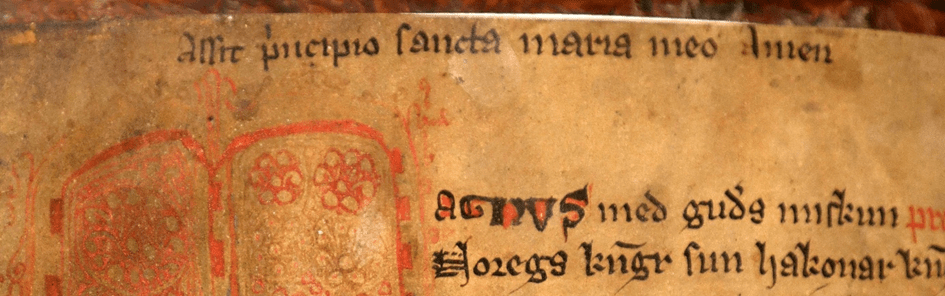 Assit pͥncipio sancta maria meo Amen
AGNVS med gudˢ miſkun
Noregs kn̄gr ſun hakonar kn̄